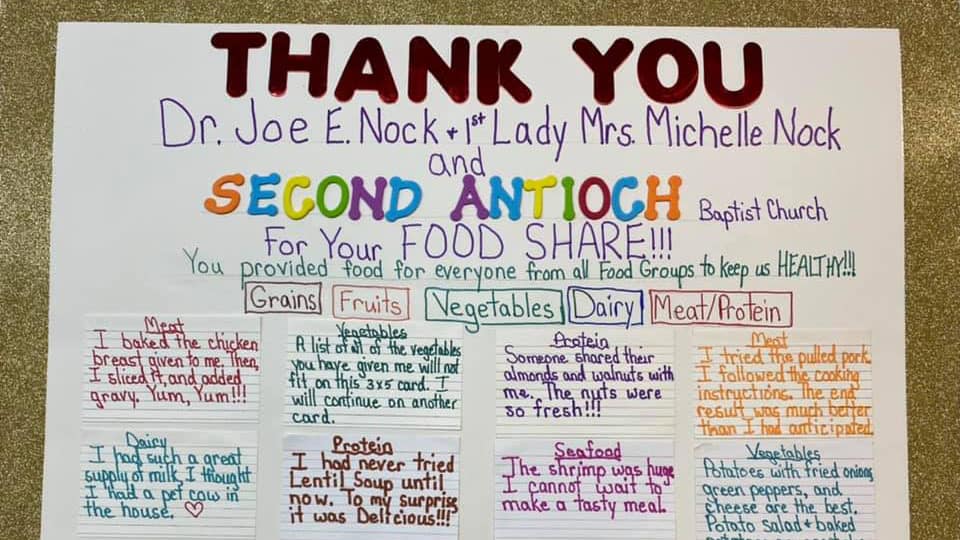 THANK YOU
Dr. Joe E. Nock + 1st Lady Mrs. Michelle Nock
and
SECOND ANTIOCH Baptist Church
For Your FOOD SHARE!!!
You provided food for everyone from all Food Groups to keep us HEALTHY!!!
Grains Fruits Vegetables Dairy Meat/Protein
Meat
I baked the chicken
breast given to me. Then,
I sliced it, and added
gravy. Yum, Yum!!!
Vegetables
A list of all of the vegetables
you have given me will not
fit on this 3x5 card. I
will continue on another
card.
Protein
Someone shared their
almonds and walnuts with
me. The nuts were
so fresh!!!
Meat
I tried the pulled pork.
I followed the cooking
instructions. The end
result was much better
than I had anticipated.
Dairy
I had such a great
supply of milk, I thought
I had a pet cow in
the house.
Protein
I had never tried
Lentil Soup until
now. To my surprise,
it was Delicious!!!
Seafood
The shrimp was huge
I cannot wait to
make a tasty meal.
Vegetables
Potatoes with fried onions
green peppers, and
cheese are the best.
Potato salad + baked